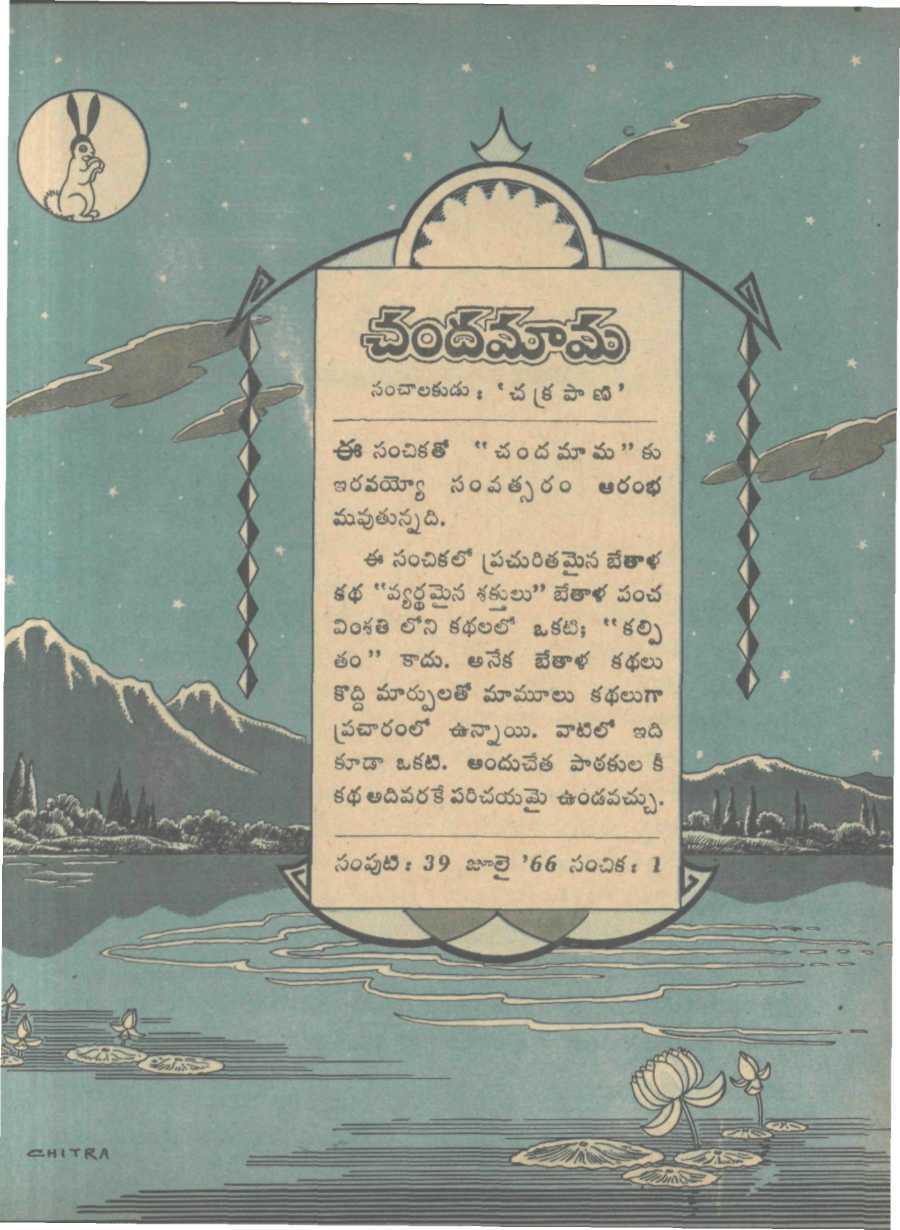 చందమామ
సంచాలకుడు : ‘చ క్ర పా ణి’
ఈ సంచికతో “చందమామ” కు
ఇరవయ్యో సంవత్సరం ఆరంభ
మవుతున్నది.
ఈ సంచికలో ప్రచురితమైన బేతాళ
కథ “వ్యర్థమైన శక్తులు” బేతాళ పంచ
వింశతి లోని కథలలో ఒకటి; “కల్పి
తం” కాదు. అనేక బేతాళ కథలు
కొద్ది మార్పులతో మామూలు కథలుగా
ప్రచారంలో ఉన్నాయి. వాటిలో ఇది
కూడా ఒకటి. అందుచేత పాఠకుల కీ
కథ అదివరకే పరిచయమై ఉండవచ్చు.
సంపుటి : 39 జూలై ’66 సంచిక : 1
CHITRA